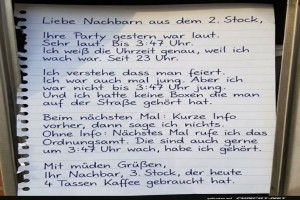 Liebe Nachbarn aus dem 2. Stock,
Ihre Party gestern war laut.
Sehr laut. Bis 3:47 Uhr.
Ich weiß die Uhrzeit genau, weil ich
wach war. Seit 23 Uhr.
Ich verstehe dass man feiert.
Ich war auch mal jung. Aber ich
war nicht bis 3:47 Uhr jung.
Und ich hatte keine Boxen die man
auf der Straße gehört hat.
Beim nächsten Mal: Kurze Info
vorher, dann sage ich nichts.
Ohne Info: Nächstes Mal rufe ich das
Ordnungsamt. Die sind auch gerne
um 3:47 Uhr wach, habe ich gehört.
Mit müden Grüßen,
Ihr Nachbar, 3. Stock, der heute
4 Tassen Kaffee gebraucht hat.